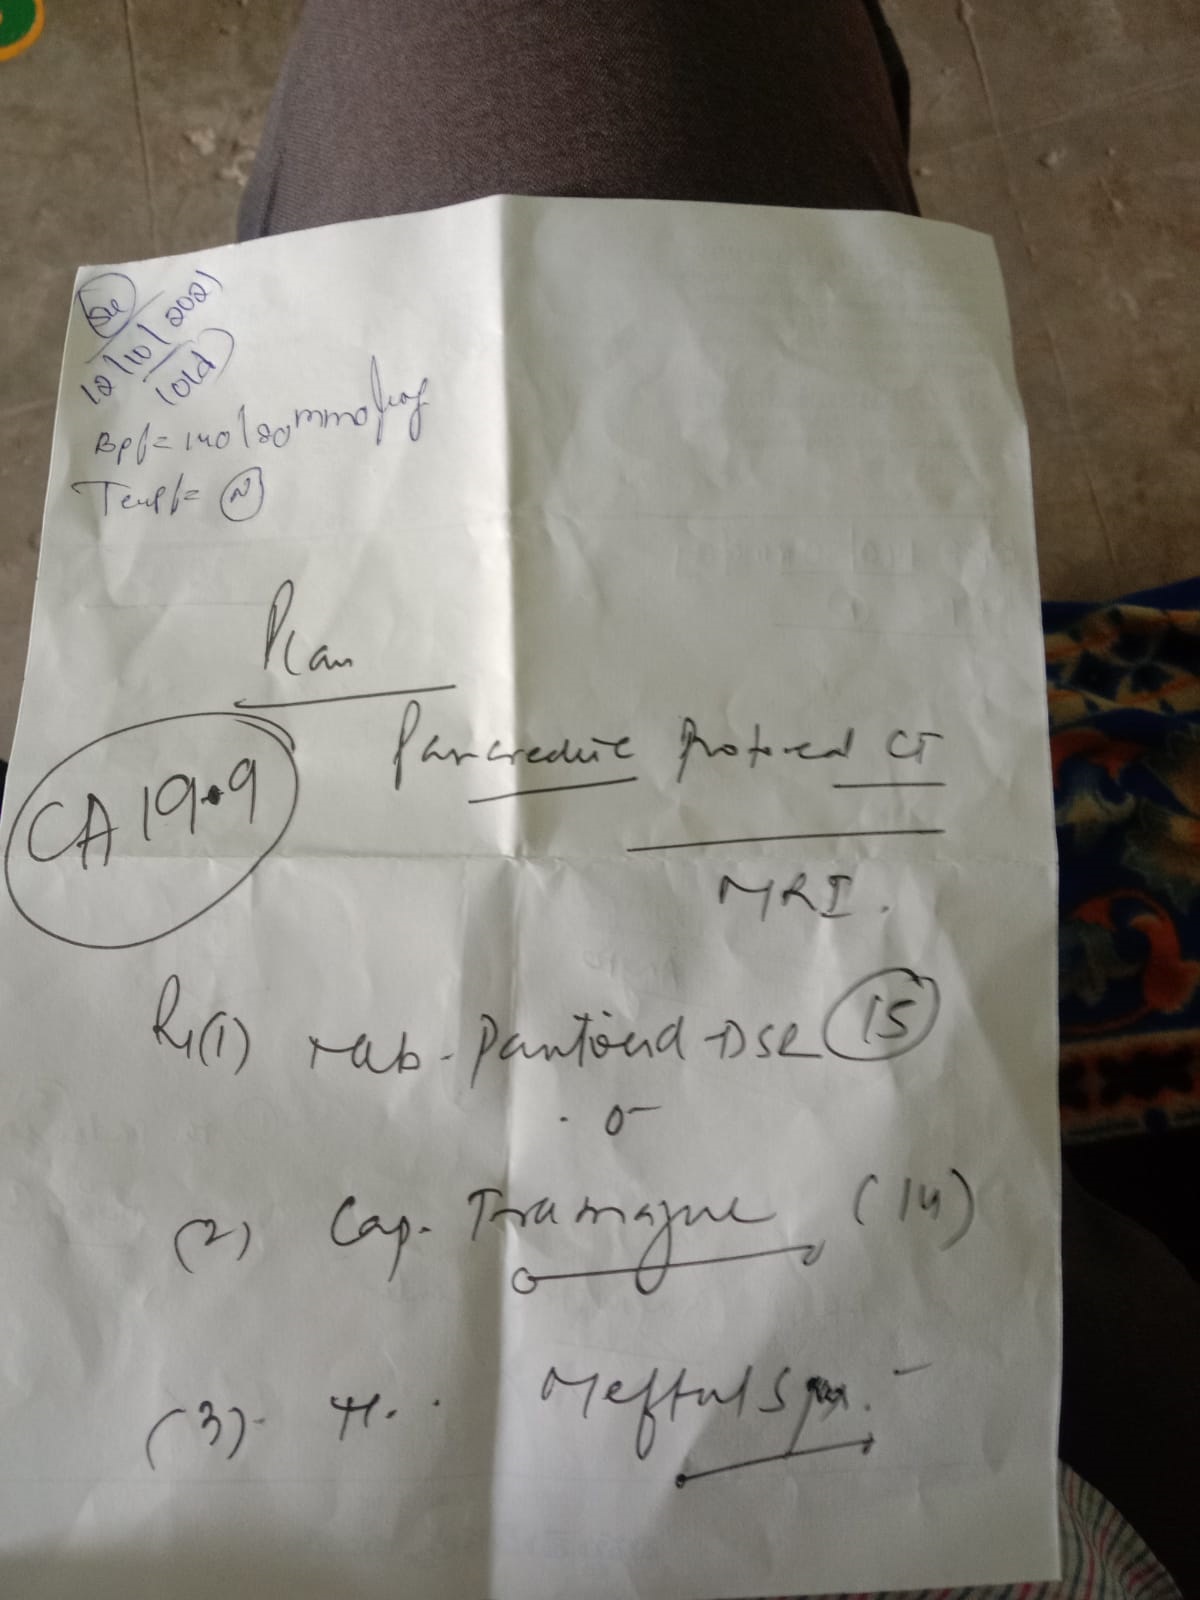 12/10/2021
(old)
Bp/= 140/80 mmofhg
Temp/= N
Plan
CA 19.9
Pancreatic Protocol CT
MRI.
Rx(1) Tab - Pantocid - DSR 15
(2) Cap. (14)
(3) - Meftal Spas.